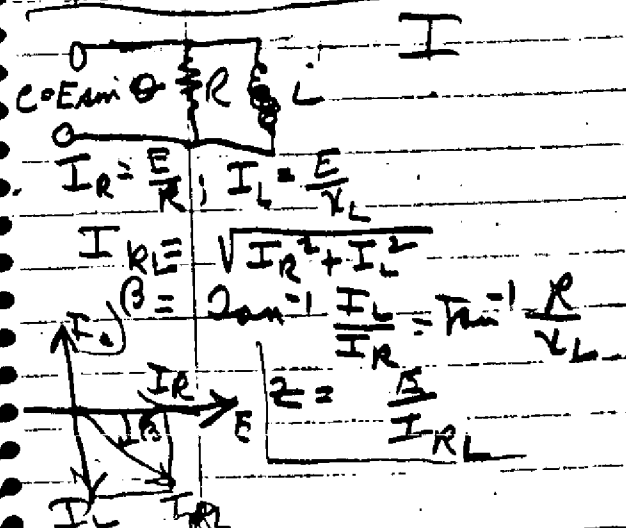 I
e=E sin θ R L
I_R = E/R; I_L = E/X_L
I_RL = √(I_R² + I_L²)
β = Tan⁻¹ I_L/I_R = Tan⁻¹ R/X_L
I_R
β E
Z = E/I_RL
I_L I_RL